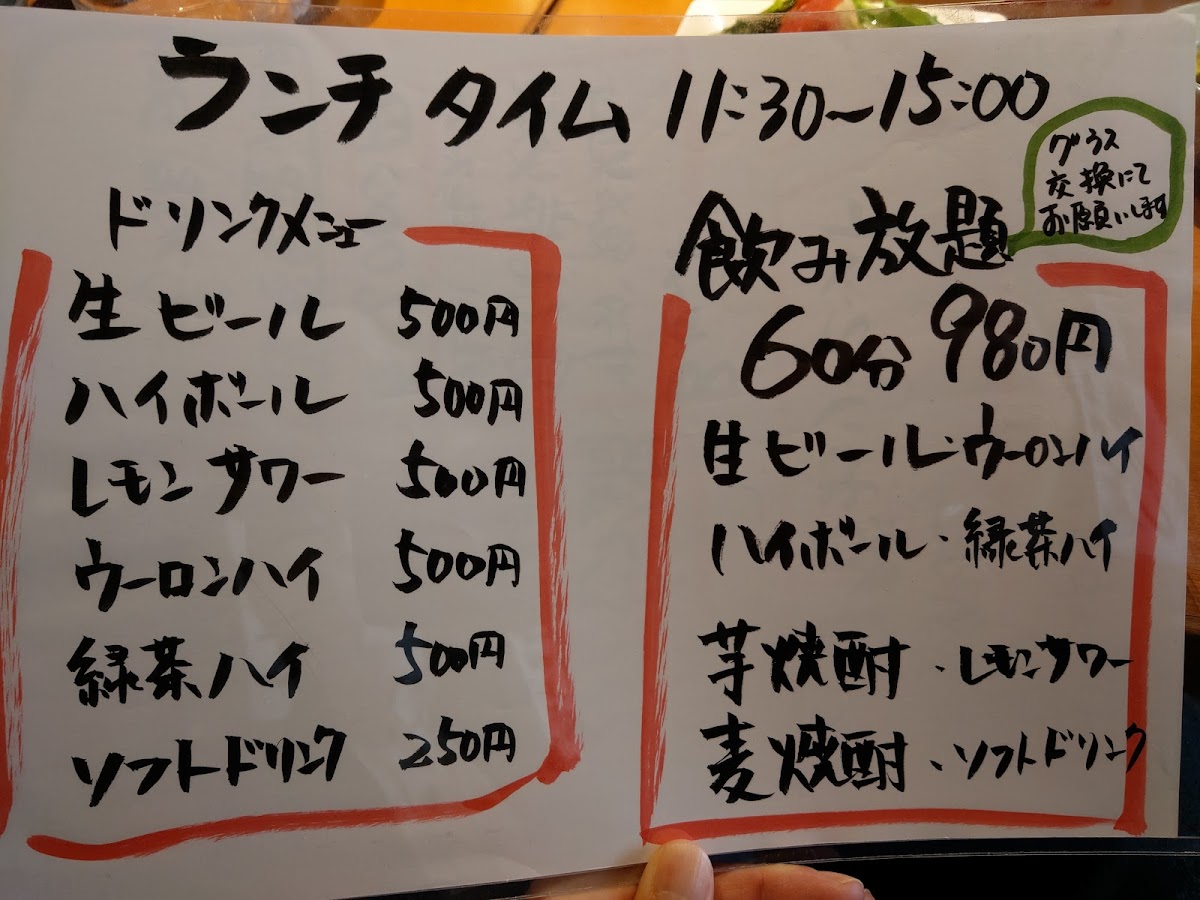 ランチタイム 11:30～15:00
グラス
交換にて
お願いします
ドリンクメニュー
生ビール 500円
ハイボール 500円
レモンサワー 500円
ウーロンハイ 500円
緑茶ハイ 500円
ソフトドリンク 250円
飲み放題
60分 980円
生ビール・ウーロンハイ
ハイボール・緑茶ハイ
芋焼酎・レモンサワー
麦焼酎・ソフトドリンク